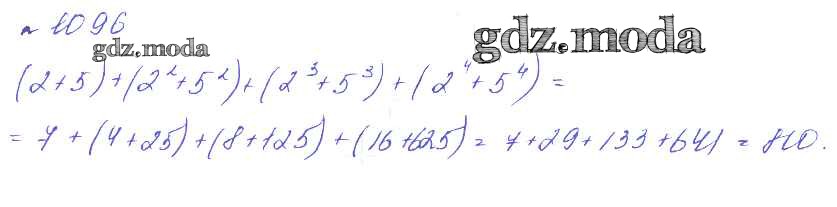 № 1096
gdz.moda
gdz.moda
(2+5)+(2²+5²)+(2³+5³)+(2⁴+5⁴)=
= 7+(4+25)+(8+125)+(16+625)= 7+29+133+641 = 810.